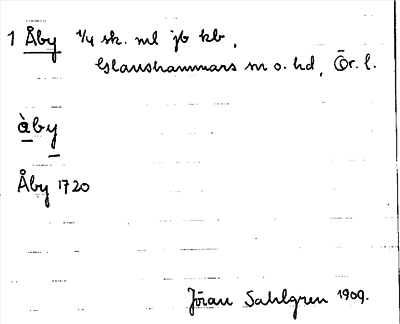 1 Åby 1/4 sk. ml jb kb,
Glanshammars sn o. hd, Ör. l.
àby
Åby 1720
Jöran Sahlgren 1909.